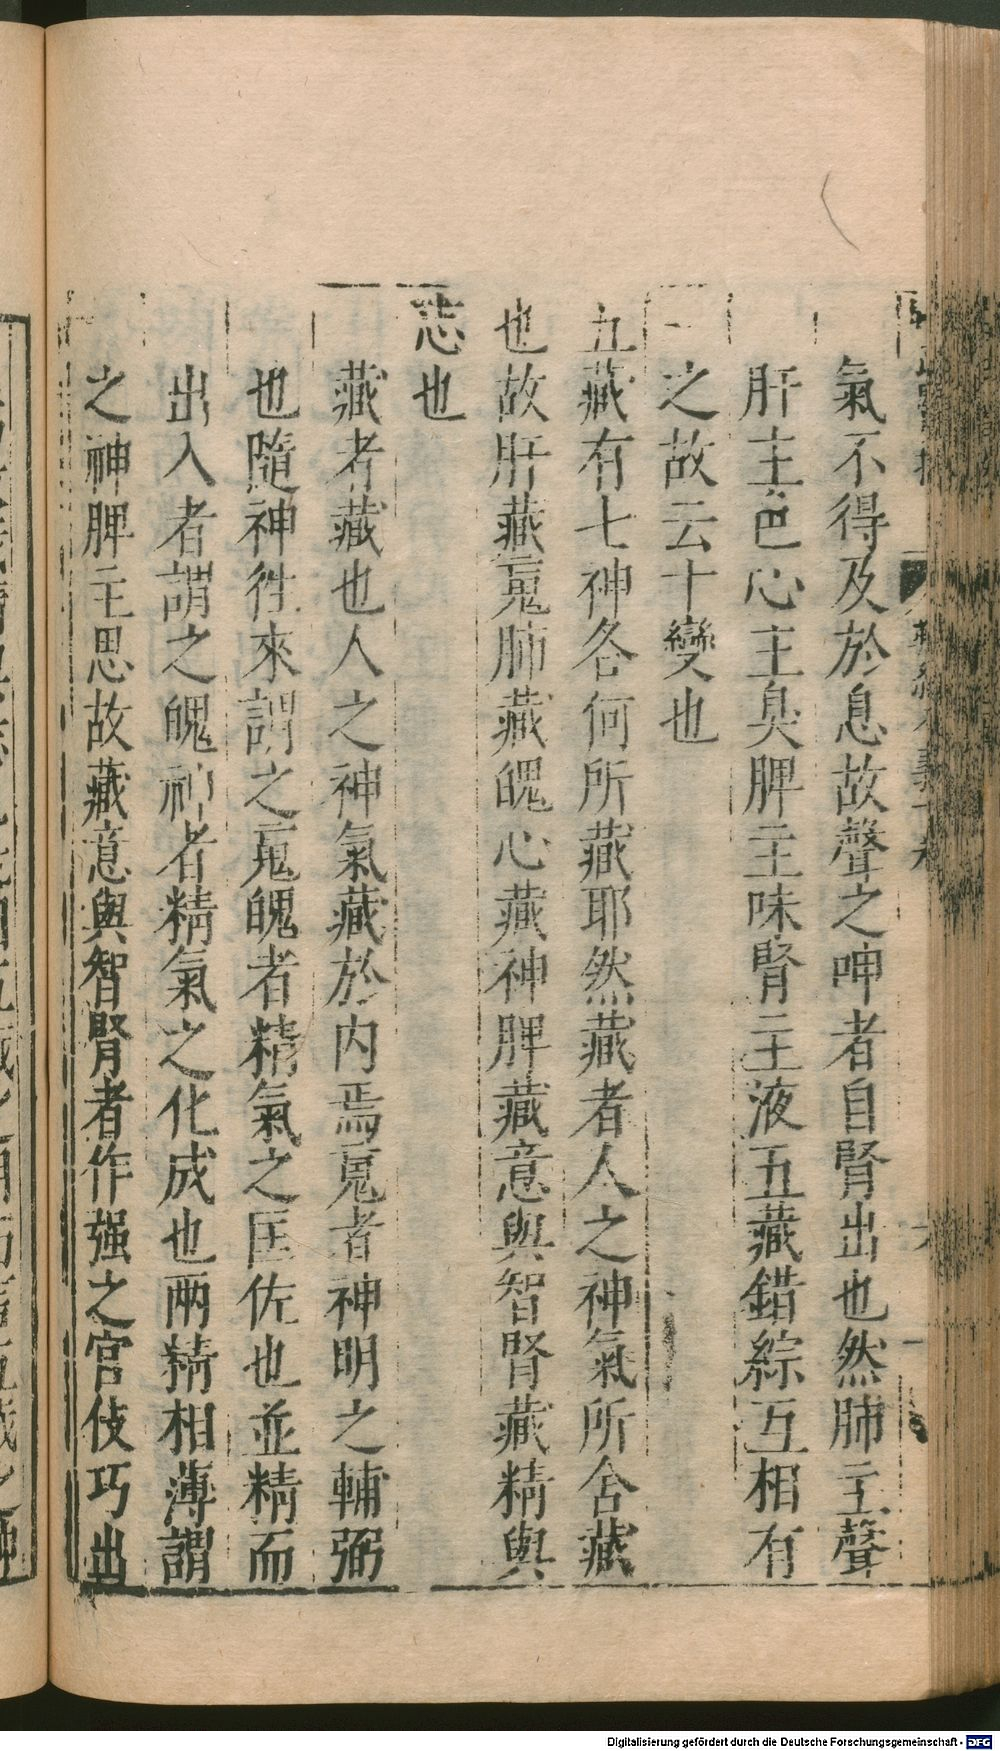 氣不得及於息故聲之呻者自腎出也然肺主聲
肝主色心主臭脾主味腎主液五藏錯綜互相有
之故云十變也
五藏有七神各何所藏耶然藏者人之神氣所舍藏
也故肝藏䰟肺藏魄心藏神脾藏意與智腎藏精與
志也
藏者藏也人之神氣藏於内焉䰟者神明之輔弼
也隨神徃來謂之䰟魄者精氣之匡佐也並精而
出入者謂之魄神者精氣之化成也兩精相薄謂
之神脾主思故藏意與智腎者作强之官伎巧出
Digitalisierung gefördert durch die Deutsche Forschungsgemeinschaft - DFG